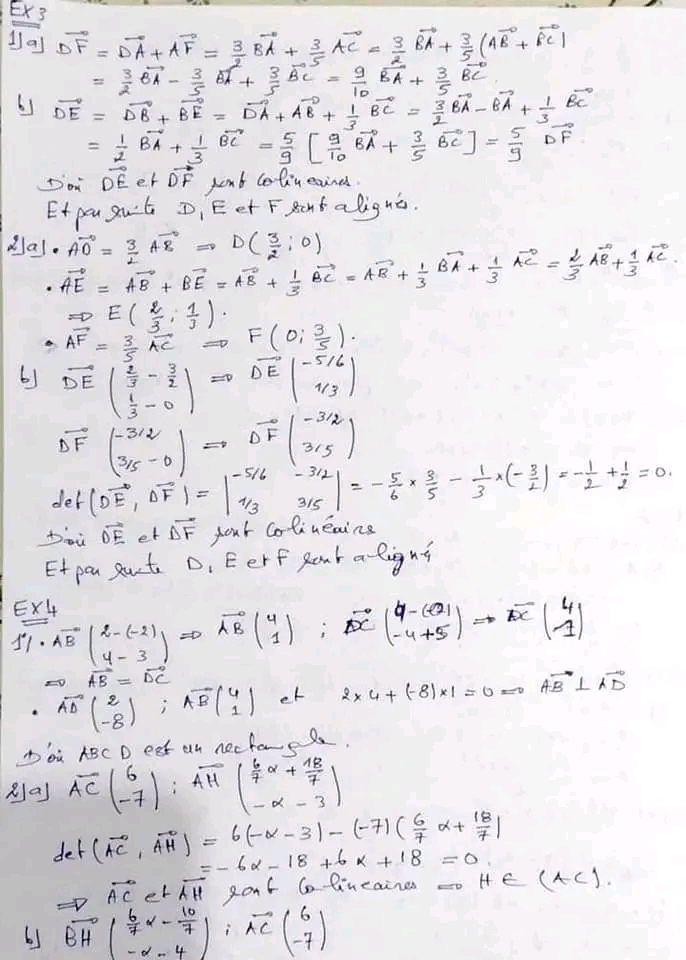 EX3
1)a) DF = DA + AF = 3/2 BA + 3/5 AC = 3/2 BA + 3/5 (AB + BC)
= 3/2 BA - 3/5 BA + 3/5 BC = 9/10 BA + 3/5 BC
b) DE = DB + BE = DA + AB + 1/3 BC = 3/2 BA - BA + 1/3 BC
= 1/2 BA + 1/3 BC = 5/9 [9/10 BA + 3/5 BC] = 5/9 DF.
D'où DE et DF sont colineaires.
Et par suite D, E et F sont alignés.
2)a) • AD = 3/2 AB ⇒ D(3/2 ; 0)
• AE = AB + BE = AB + 1/3 BC = AB + 1/3 BA + 1/3 AC = 2/3 AB + 1/3 AC.
⇒ E(2/3 ; 1/3).
• AF = 3/5 AC ⇒ F(0; 3/5).
b) DE (2/3 - 3/2 ; 1/3 - 0) ⇒ DE (-5/6 ; 1/3)
DF (-3/2 ; 3/5 - 0) ⇒ DF (-3/2 ; 3/5)
det(DE, DF) = |-5/6 -3/2 ; 1/3 3/5| = -5/6 × 3/5 - 1/3 × (-3/2) = -1/2 + 1/2 = 0.
D'où DE et DF sont colinéaires
Et par suite D, E et F sont aligné
EX4
1) • AB (2-(-2) ; 4-3) ⇒ AB (4 ; 1) ; DC (4-(0) ; -4+5) ⇒ DC (4 ; 1)
⇒ AB = DC
• AD (2 ; -8) ; AB (4 ; 1) et 2×4 + (-8)×1 = 0 ⇒ AB ⊥ AD
D'où ABCD est un rectangle.
2)a) AC (6 ; -7) ; AH (6/7 α + 18/7 ; -α - 3)
det(AC, AH) = 6(-α - 3) - (-7)(6/7 α + 18/7)
= -6α - 18 + 6α + 18 = 0.
⇒ AC et AH sont colineaires ⇒ H ∈ (AC).
b) BH (6/7 α - 10/7 ; -α - 4) ; AC (6 ; -7)